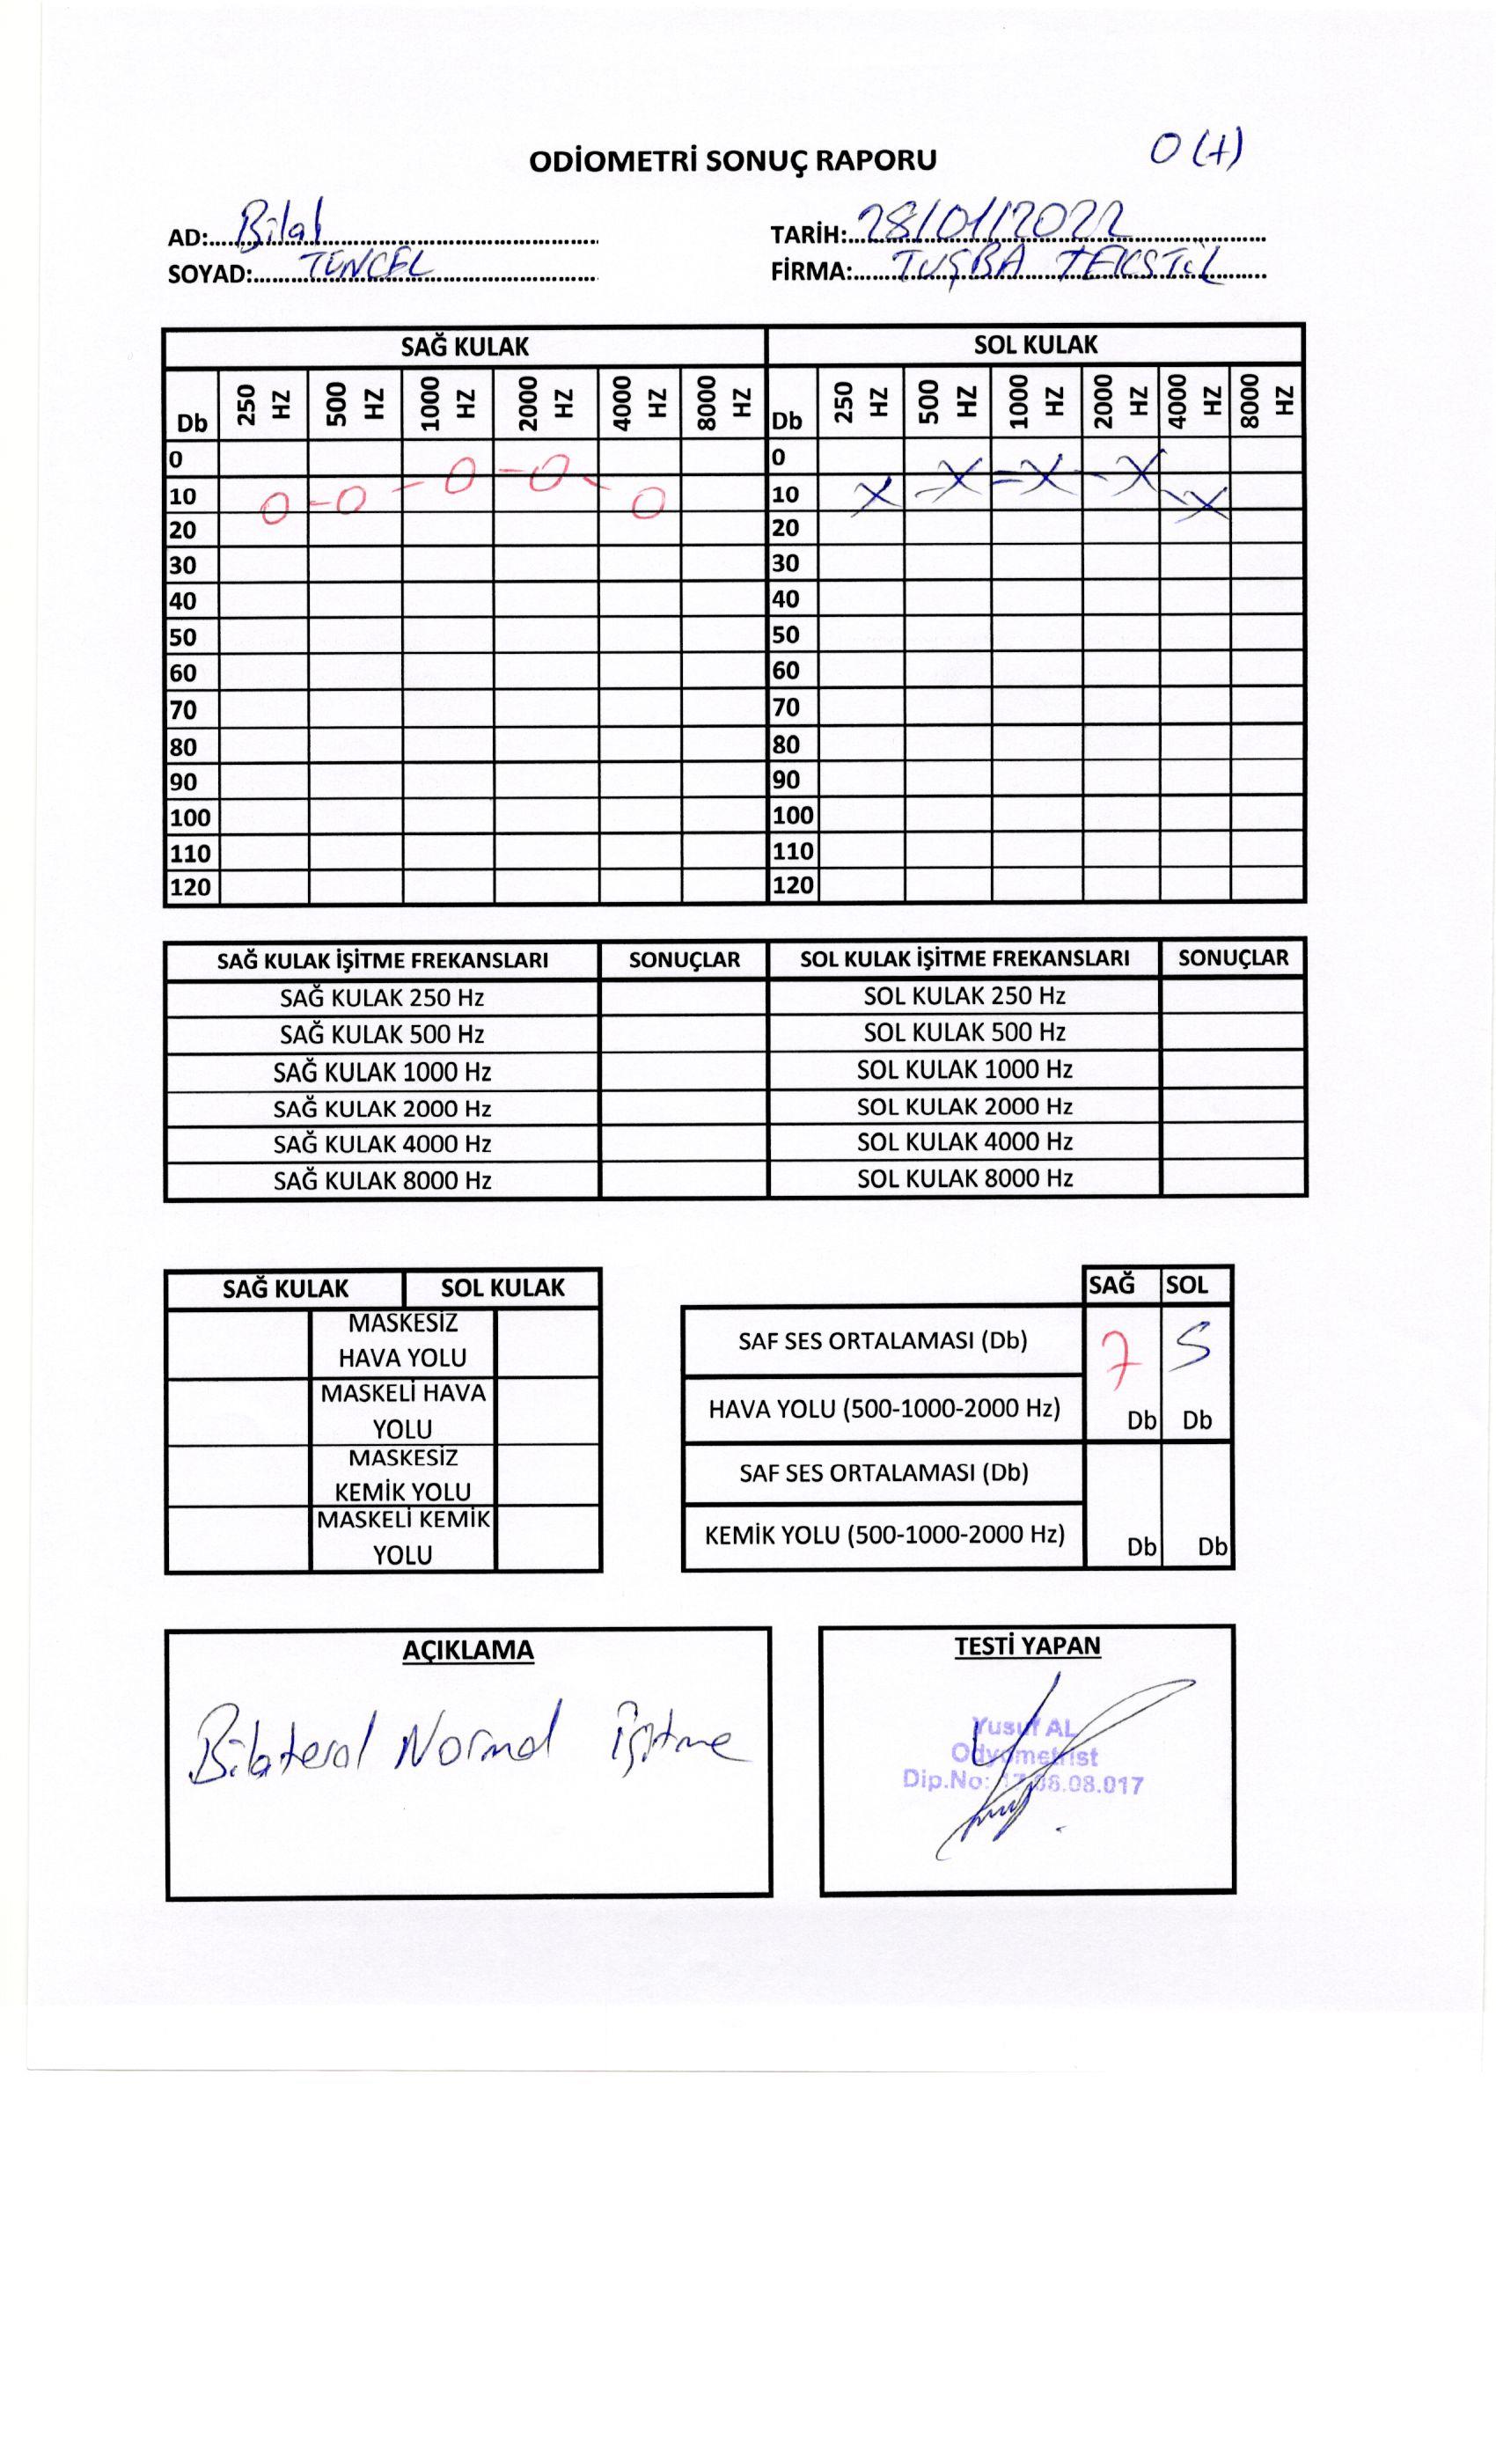 ODİOMETRİ SONUÇ RAPORU
O (+)
AD: Bilal
TARİH: 28/01/2022
SOYAD: TUNCEL
FİRMA: TUŞBA TEKSTİL
SAĞ KULAK SOL KULAK
Db 250 HZ 500 HZ 1000 HZ 2000 HZ 4000 HZ 8000 HZ Db 250 HZ 500 HZ 1000 HZ 2000 HZ 4000 HZ 8000 HZ
0 0
10 10
20 20
30 30
40 40
50 50
60 60
70 70
80 80
90 90
100 100
110 110
120 120
SAĞ KULAK İŞİTME FREKANSLARI SONUÇLAR SOL KULAK İŞİTME FREKANSLARI SONUÇLAR
SAĞ KULAK 250 Hz SOL KULAK 250 Hz
SAĞ KULAK 500 Hz SOL KULAK 500 Hz
SAĞ KULAK 1000 Hz SOL KULAK 1000 Hz
SAĞ KULAK 2000 Hz SOL KULAK 2000 Hz
SAĞ KULAK 4000 Hz SOL KULAK 4000 Hz
SAĞ KULAK 8000 Hz SOL KULAK 8000 Hz
SAĞ KULAK SOL KULAK
MASKESİZ
HAVA YOLU
MASKELİ HAVA
YOLU
MASKESİZ
KEMİK YOLU
MASKELİ KEMİK
YOLU
SAĞ SOL
SAF SES ORTALAMASI (Db) 7 5
HAVA YOLU (500-1000-2000 Hz) Db Db
SAF SES ORTALAMASI (Db)
KEMİK YOLU (500-1000-2000 Hz) Db Db
AÇIKLAMA
Bilateral Normal İşitme
TESTİ YAPAN
Yusuf AL
Odyometrist
Dip.No: 17.06.08.017